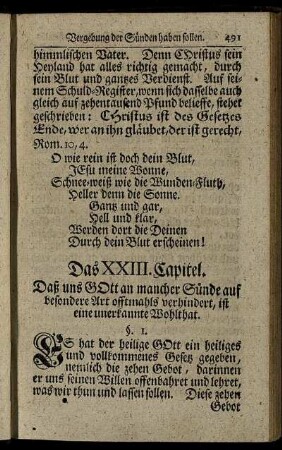 Vergebung der Sünden haben sollen. 491
himmlischen Vater. Denn CHristus sein
Heyland hat alles richtig gemacht, durch
sein Blut und gantzes Verdienst. Auf sei-
nem Schuld-Register, wenn sich dasselbe auch
gleich auf zehentausend Pfund belieffe, stehet
geschrieben: CHristus ist des Gesetzes
Ende, wer an ihn gläubet, der ist gerecht,
Rom. 10, 4.
O wie rein ist doch dein Blut,
JEsu meine Wonne,
Schnee-weiß wie die Wunden-Fluth,
Heller denn die Sonne.
Gantz und gar,
Hell und klar,
Werden dort die Deinen
Durch dein Blut erscheinen!
Das XXIII. Capitel.
Daß uns GOtt an mancher Sünde auf
besondere Art offtmahls verhindert, ist
eine unerkannte Wohlthat.
§. 1.
ES hat der heilige GOtt ein heiliges
und vollkommenes Gesetz gegeben,
nemlich die zehen Gebot, darinnen
er uns seinen Willen offenbahret und lehret,
was wir thun und lassen sollen. Diese zehen
Gebot